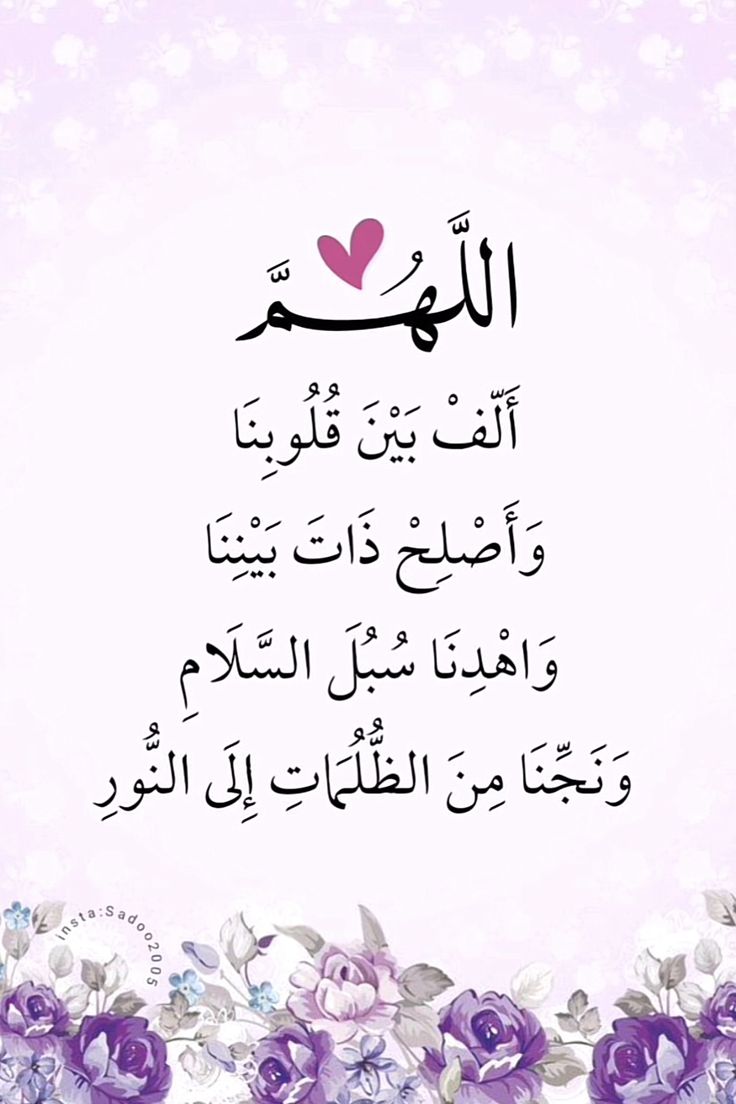 اللَّهُمَّ
أَلِّفْ بَيْنَ قُلُوبِنَا
وَأَصْلِحْ ذَاتَ بَيْنِنَا
وَاهْدِنَا سُبُلَ السَّلَامِ
وَنَجِّنَا مِنَ الظُّلُمَاتِ إِلَى النُّورِ
insta:Sadoo2005